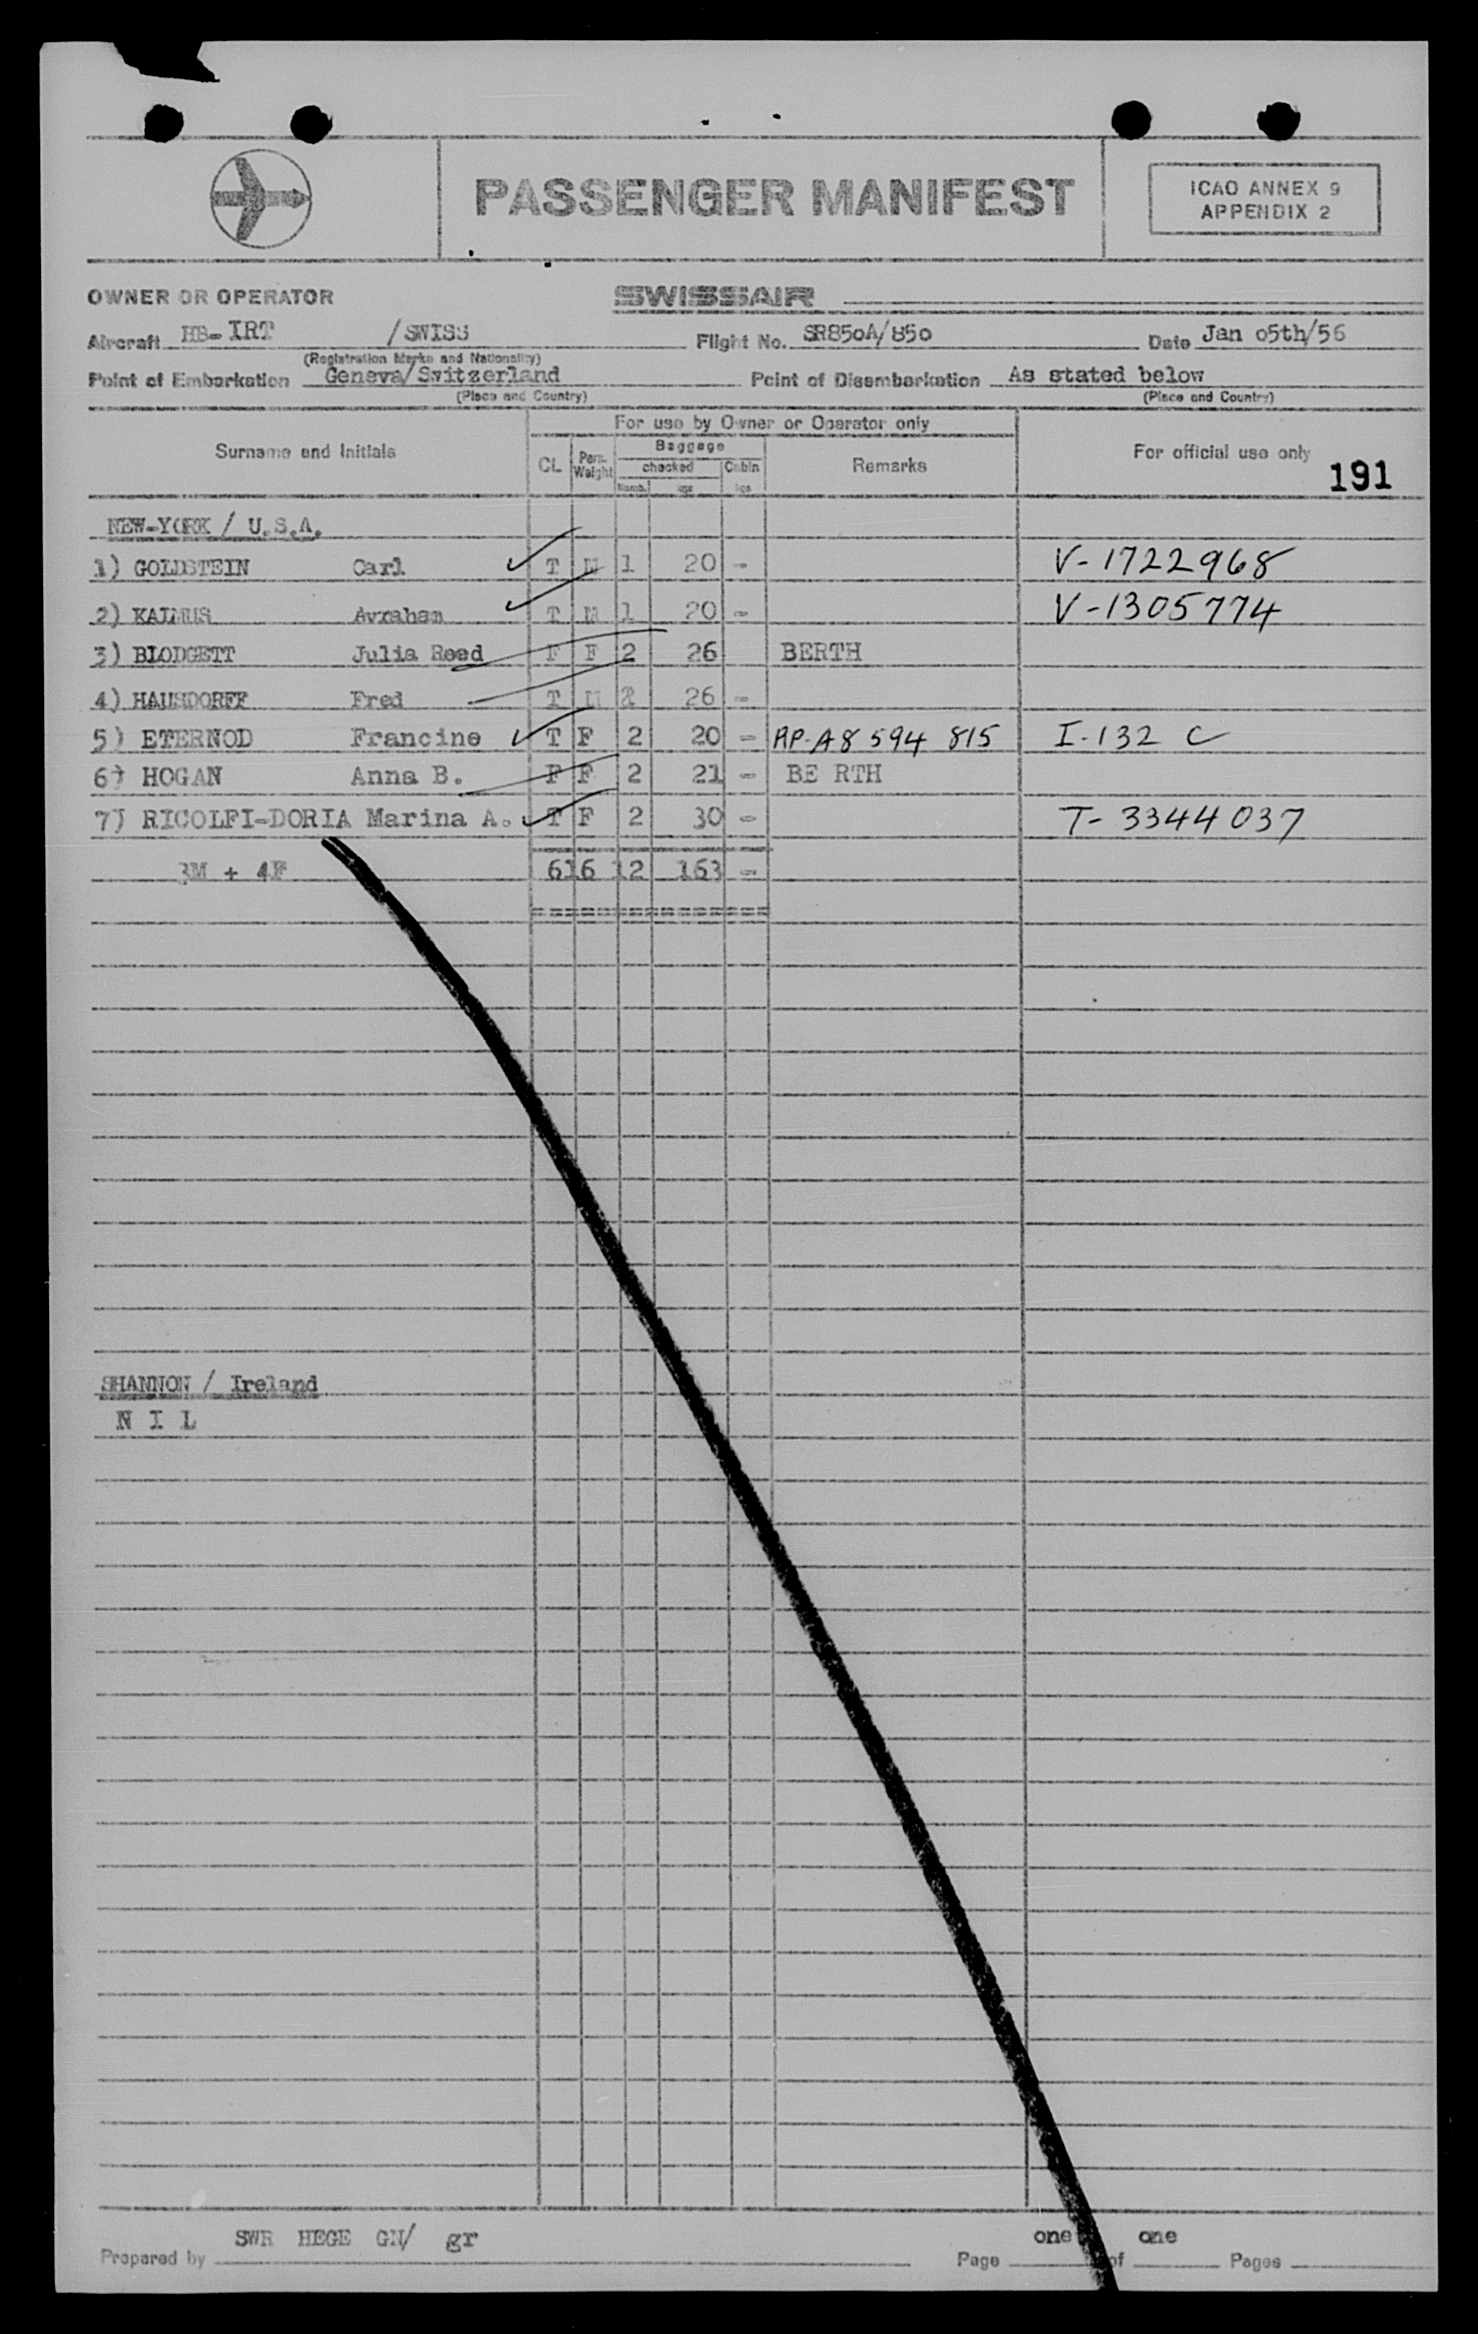 PASSENGER MANIFEST
ICAO ANNEX 9
APPENDIX 2
OWNER OR OPERATOR SWISSAIR
Aircraft HB-IRT /SWISS Flight No. SR850A/850 Date Jan 05th/56
(Registration Marks and Nationality)
Point of Embarkation Geneva/Switzerland Point of Disembarkation As stated below
(Place and Country) (Place and Country)
For use by Owner or Operator only
Surname and Initials CL Pers. Weight Baggage checked Numb. kgs Cabin kgs Remarks For official use only
191
NEW-YORK / U.S.A.
1) GOLDSTEIN Carl T M 1 20 - V-1722968
2) KALMUS Avraham T M 1 20 - V-1305774
3) BLODGETT Julia Reed F F 2 26 BERTH
4) HAUSDORFF Fred T M 2 26 -
5) ETERNOD Francine T F 2 20 - RP-A8 594 815 I-132 C
6) HOGAN Anna B. F F 2 21 - BE RTH
7) RICOLFI-DORIA Marina A. T F 2 30 - T-3344037
3M + 4F 616 12 163 -
=================
SHANNON / Ireland
N I L
Prepared by SWR HEGE GN/ gr Page one of one Pages